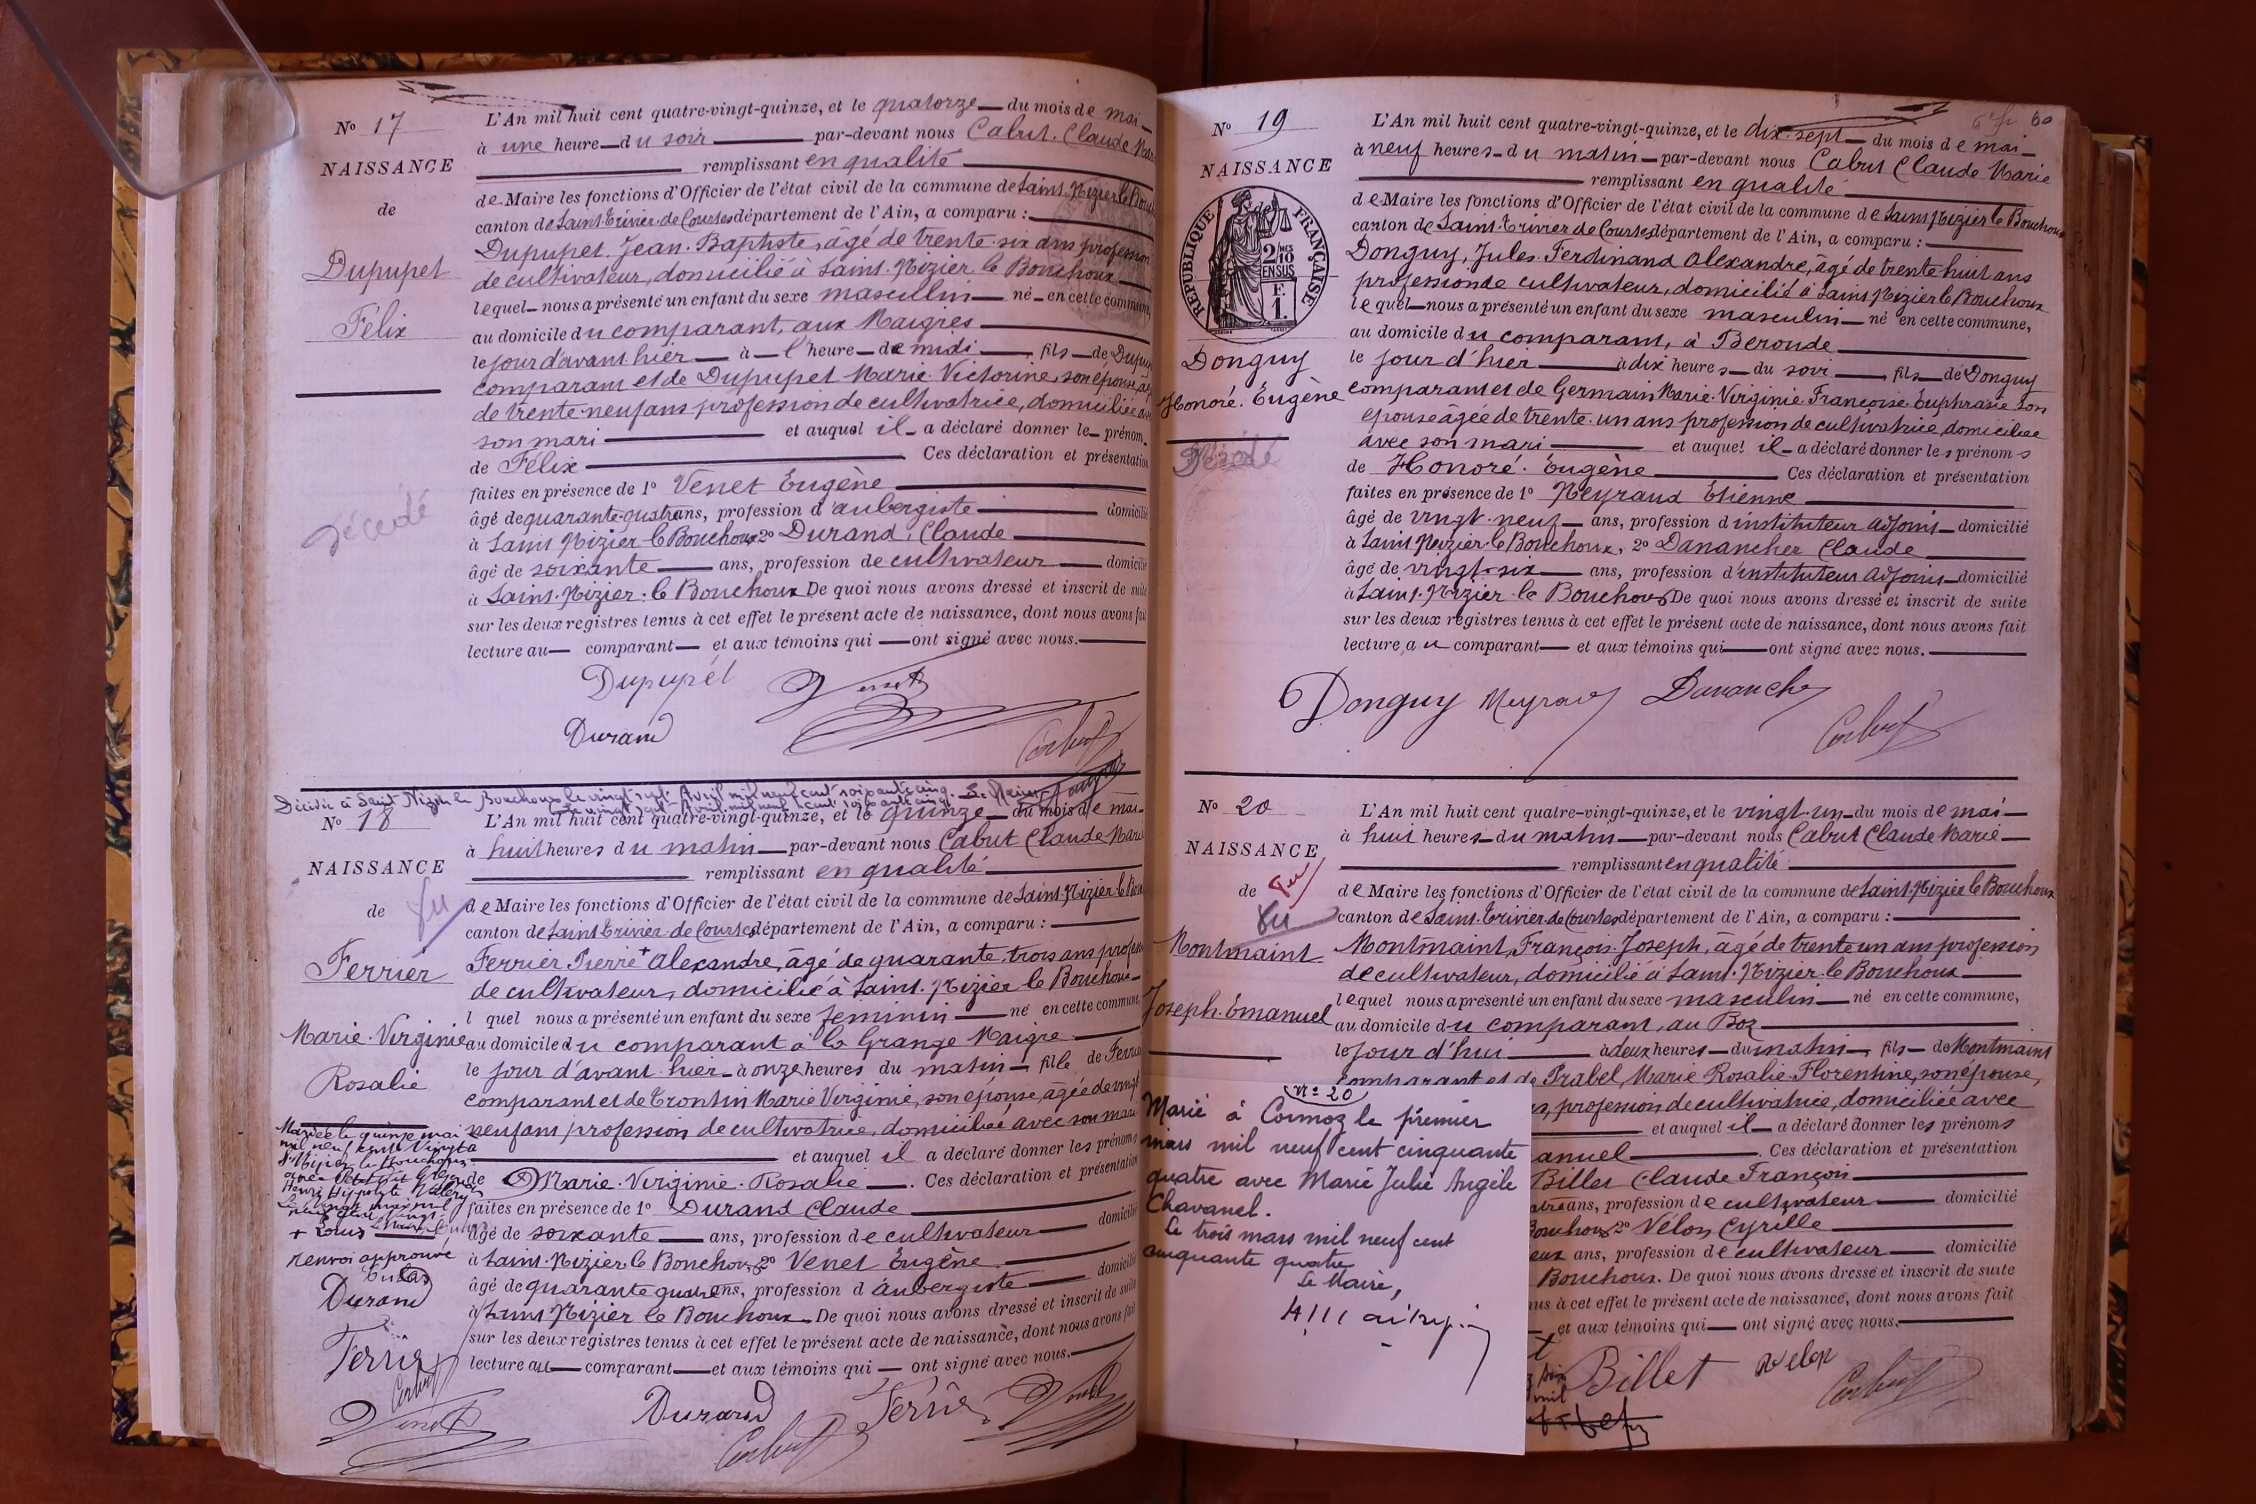 N° 17
NAISSANCE
de
Dupupet
Félix
décédé
L'An mil huit cent quatre-vingt-quinze, et le quatorze du mois de mai
à une heure du soir par-devant nous Cabut Claude Mar
remplissant en qualité
de Maire les fonctions d'Officier de l'état civil de la commune de Saint-Nizier le Bouch
canton de Saint-Trivier de Courtes département de l'Ain, a comparu :
Dupupet Jean-Baptiste, âgé de trente-six ans profession
de cultivateur, domicilié à Saint-Nizier le Bouchoux
lequel nous a présenté un enfant du sexe masculin né en cette commune,
au domicile du comparant, aux Maigres
le jour d'avant hier à l'heure de midi, fils de Dupup
comparant et de Dupupet Marie Victorine, son épouse, âg
de trente-neuf ans profession de cultivatrice, domiciliée av
son mari et auquel il a déclaré donner le prénom
de Félix Ces déclaration et présentation
faites en présence de 1° Venet Eugène
âgé de quarante-quatre ans, profession d'aubergiste domicilié
à Saint Nizier le Bouchoux 2° Durand, Claude
âgé de soixante ans, profession de cultivateur domicilié
à Saint-Nizier-le Bouchoux De quoi nous avons dressé et inscrit de suite
sur les deux registres tenus à cet effet le présent acte de naissance, dont nous avons fait
lecture au comparant et aux témoins qui ont signé avec nous.
Dupupét Venet
Durand Cabut
Décédée à Saint Nizier le Bouchoux le vingt sept Avril mil neuf cent soixante cinq. Le Maire
N° 18
NAISSANCE
de
Vu
Ferrier
Marie-Virginie
Rosalie
Mariée le quinze mai
mil neuf cent vingt à
St Nizier le Bouchoux
renvoi approuvé
Durand
Ferrier
Cabut
Venet
L'An mil huit cent quatre-vingt-quinze, et le quinze du mois de mai
à huit heures du matin par-devant nous Cabut Claude Marie
remplissant en qualité
de Maire les fonctions d'Officier de l'état civil de la commune de Saint-Nizier le Bou
canton de Saint Trivier de Courtes département de l'Ain, a comparu :
Ferrier Pierre + Alexandre, âgé de quarante-trois ans profess
de cultivateur, domicilié à Saint-Nizier le Bouchoux
l quel nous a présenté un enfant du sexe féminin né en cette commune,
au domicile du comparant à la Grange Maigre
le jour d'avant-hier à onze heures du matin, fille de Ferrier
comparant et de Trontin Marie Virginie, son épouse, âgée de vingt
neuf ans profession de cultivatrice, domiciliée avec son mari
et auquel il a déclaré donner les prénoms
de Marie-Virginie-Rosalie. Ces déclaration et présentation
faites en présence de 1° Durand Claude
âgé de soixante ans, profession de cultivateur domicilié
à Saint-Nizier le Bouchoux 2° Venet Eugène
âgé de quarante quatre ans, profession d'aubergiste domicilié
à Saint Nizier le Bouchoux De quoi nous avons dressé et inscrit de suite
sur les deux registres tenus à cet effet le présent acte de naissance, dont nous avons fait
lecture au comparant et aux témoins qui ont signé avec nous.
Durand Ferrier Venet
Cabut
60
N° 19
NAISSANCE
de
RÉPUBLIQUE FRANÇAISE
2/10 EN SUS
F. 1.
Donguy
Honoré-Eugène
L'An mil huit cent quatre-vingt-quinze, et le dix-sept du mois de mai
à neuf heures du matin par-devant nous Cabut Claude Marie
remplissant en qualité
de Maire les fonctions d'Officier de l'état civil de la commune de Saint Nizier le Bouchoux
canton de Saint-Trivier de Courtes département de l'Ain, a comparu :
Donguy, Jules Ferdinand Alexandre, âgé de trente huit ans
profession de cultivateur, domicilié à Saint Nizier le Bouchoux
lequel nous a présenté un enfant du sexe masculin né en cette commune,
au domicile du comparant, à Béronde
le jour d'hier à dix heures du soir, fils de Donguy
comparant et de Germain Marie-Virginie-Françoise-Euphrasie son
épouse âgée de trente-un ans profession de cultivatrice domiciliée
avec son mari et auquel il a déclaré donner les prénoms
de Honoré-Eugène Ces déclaration et présentation
faites en présence de 1° Meyraud Etienne
âgé de vingt-neuf ans, profession d'instituteur adjoint domicilié
à Saint Nizier-le Bouchoux, 2° Danancher Claude
âgé de vingt-six ans, profession d'instituteur adjoint domicilié
à Saint-Nizier-le Bouchoux De quoi nous avons dressé et inscrit de suite
sur les deux registres tenus à cet effet le présent acte de naissance, dont nous avons fait
lecture au comparant et aux témoins qui ont signé avec nous.
Donguy Meyraud Danancher
Cabut
N° 20
NAISSANCE
de
Vu
Vu
Montmaint
Joseph-Emanuel
L'An mil huit cent quatre-vingt-quinze, et le vingt-un du mois de mai
à huit heures du matin par-devant nous Cabut Claude Marie
remplissant en qualité
de Maire les fonctions d'Officier de l'état civil de la commune de Saint-Nizier le Bouchoux
canton de Saint-Trivier-de Courtes département de l'Ain, a comparu :
Montmaint, François-Joseph, âgé de trente un ans profession
de cultivateur, domicilié à Saint-Nizier-le Bouchoux
lequel nous a présenté un enfant du sexe masculin né en cette commune,
au domicile du comparant, au Boz
le jour d'hui à deux heures du matin, fils de Montmaint
comparant et de Prabel, Marie Rosalie-Florentine, son épouse,
profession de cultivatrice, domiciliée avec
et auquel il a déclaré donner les prénoms
anuel. Ces déclaration et présentation
Billet Claude François
ans, profession de cultivateur domicilié
Bouchoux 2° Vélon Cyrille
eux ans, profession de cultivateur domicilié
Bouchoux. De quoi nous avons dressé et inscrit de suite
nus à cet effet le présent acte de naissance, dont nous avons fait
et aux témoins qui ont signé avec nous.
Billet Velon Cabut
n° 20
Marié à Cormoz le premier
mars mil neuf cent cinquante
quatre avec Marie Julie Angèle
Chavanel.
Le trois mars mil neuf cent
cinquante quatre
Le Maire,